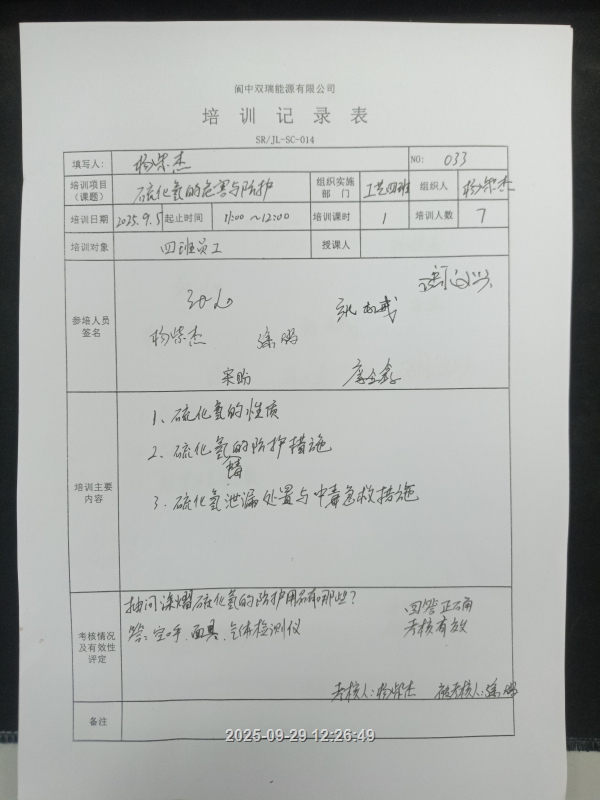 阆中双瑞能源有限公司
培训记录表
SR/JL-SC-014
填写人: 杨紫杰 NO: 033
培训项目(课题) 硫化氢的危害与防护 组织实施部门 工艺四班 组织人 杨紫杰
培训日期 2025.9.5 起止时间 11:00~12:00 培训课时 1 培训人数 7
培训对象 四班员工 授课人
参培人员签名
杨紫杰
宋盼
培训主要内容
1、硫化氢的性质
2、硫化氢的防护措施
3、硫化氢泄漏处置与中毒急救措施
考核情况及有效性评定
抽问涂熠硫化氢的防护用品有哪些?
答:空呼、面具、气体检测仪
回答正确
考核有效
考核人:杨紫杰 被考核人:
备注
2025-09-29 12:26:49